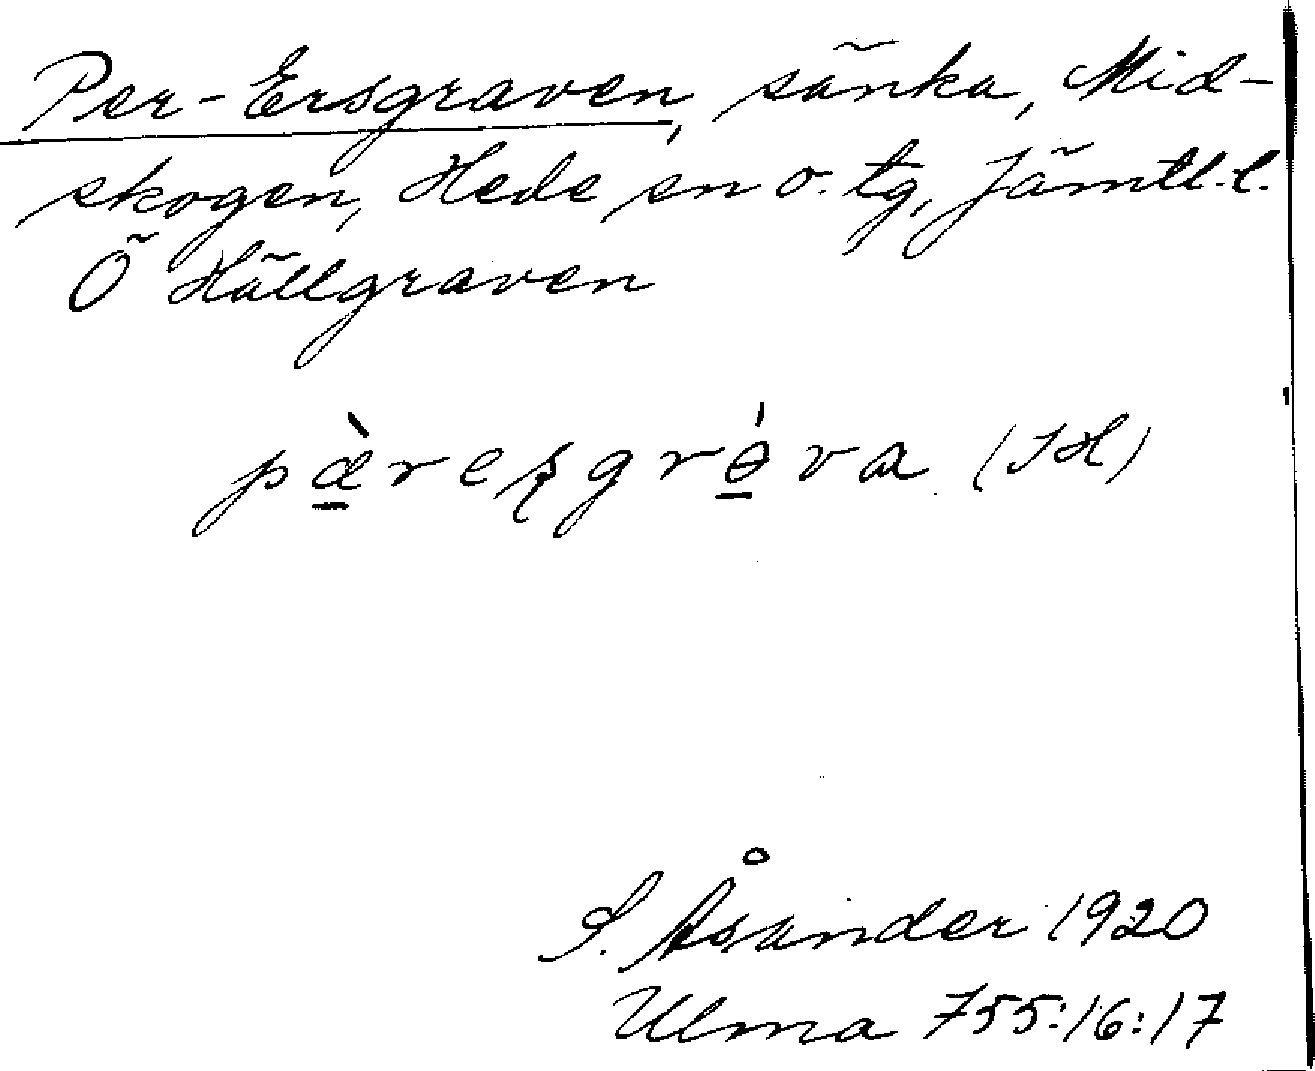 Per-Ersgraven, sänka, Mid-
skogen, Hede sn o. tg, Jämtl. l.
Ö Hällgraven
pæ̀reʂgrɵ́va (JH)
S. Åsander 1920
Ulma 755:16:17